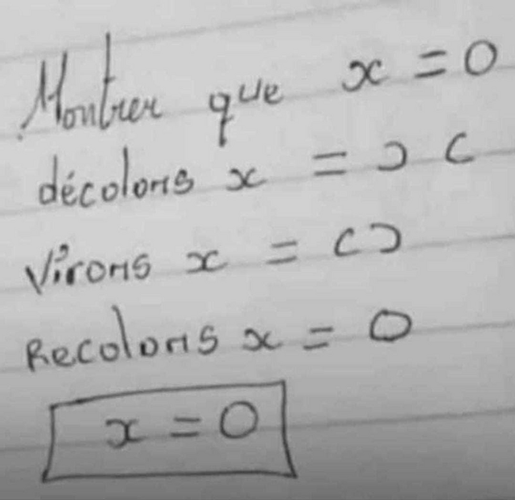 Montrer que x = 0
décolons x = ɔ c
Virons x = cɔ
Recolons x = 0
x = 0